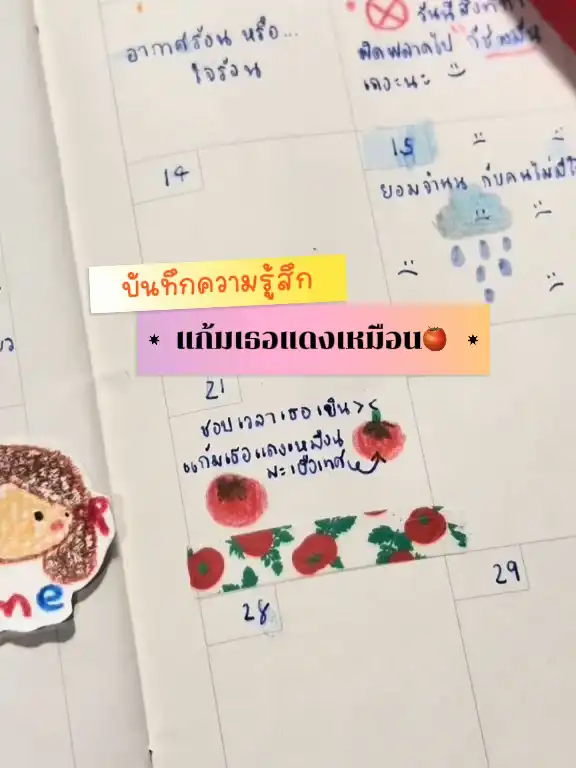 อากาศร้อน หรือ...
ใจร้อน
วันนี้
ผิดพลาดไป ก็ช่างมัน
เถอะนะ
14
15
ยอมจำนน กับคนไม่มีใ
บันทึกความรู้สึก
* แก้มเธอแดงเหมือน🍅 *
21
ชอบเวลาเธอเขิน><
แก้มเธอแดงเหมือน
มะเขือเทศ
R
me
28
29